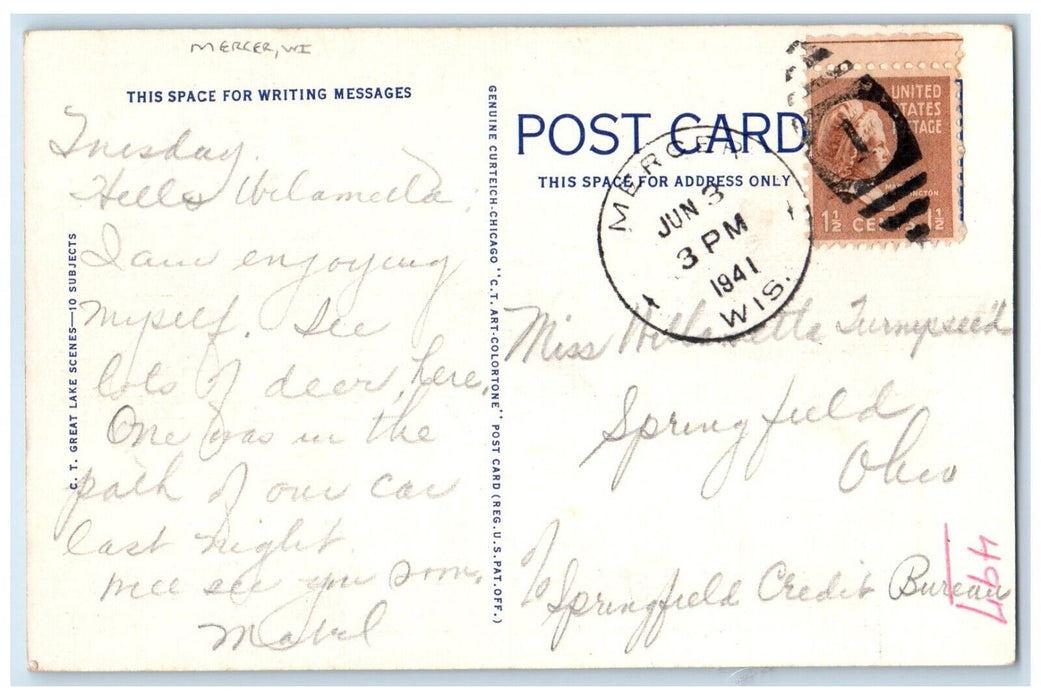 MERCER, WI
THIS SPACE FOR WRITING MESSAGES
Tuesday.
Hello Wilametta,
I am enjoying
myself. See
lots of deer, here.
One was in the
path of our car
last night.
Will see you soon.
Mabel
C. T. GREAT LAKE SCENES—10 SUBJECTS
GENUINE CURTEICH-CHICAGO "C.T. ART-COLORTONE" POST CARD (REG. U.S. PAT. OFF.)
POST CARD
THIS SPACE FOR ADDRESS ONLY
MERCER
JUN 3
3 PM
1941
WIS.
UNITED
STATES
POSTAGE
WASHINGTON
1½ CENTS 1½
Miss Willametta Turnypseed
Springfield
Ohio
℅ Springfield Credit Bureau